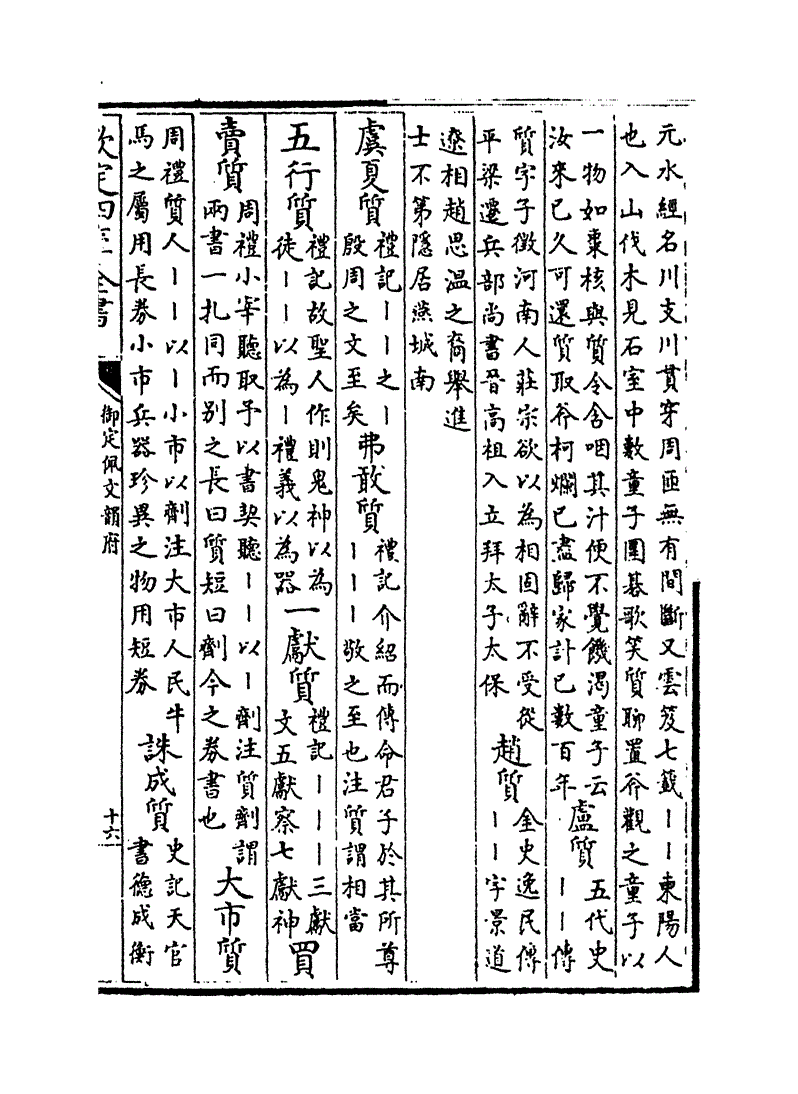 元水經名川支川貫穿周匝無有間斷又雲笈七籤丨丨東陽人
也入山伐木見石室中數童子圍碁歌笑質聊置斧觀之童子以
一物如棗核與質令含咽其汁便不覺饑渴童子云
汝來已久可還質取斧柯爛已盡歸家計已數百年
盧質
五代史丨丨傳
質字子徵河南人莊宗欲以為相固辭不受從
平梁遷兵部尚書晉高祖入立拜太子太保
趙質
金史逸民傳
丨丨字景道
遼相趙思溫之裔舉進
士不第隱居燕城南
虞夏質
禮記丨丨之丨
殷周之文至矣
弗敢質
禮記介紹而傳命君子於其所尊
丨丨丨敬之至也注質謂相當
五行質
禮記故聖人作則鬼神以為
徒丨丨以為丨禮義以為器
一獻質
禮記丨丨丨三獻
文五獻察七獻神
買
賣質
周禮小宰聽取予以書契聽丨丨以丨劑注質劑謂
兩書一扎同而別之長曰質短曰劑今之券書也
大市質
周禮質人丨丨以丨小市以劑注大市人民牛
馬之屬用長券小市兵器珍異之物用短券
誅成質
史記天官
書德成衡
欽定四庫全書
御定佩文韻府
十六